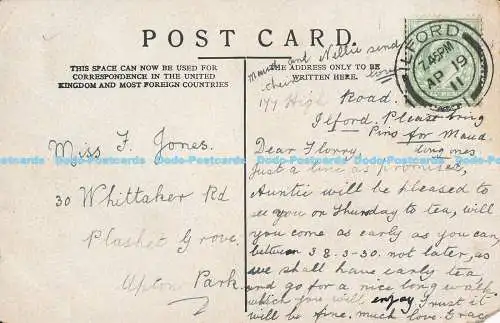 POST CARD.
THIS SPACE CAN NOW BE USED FOR
CORRESPONDENCE IN THE UNITED
KINGDOM AND MOST FOREIGN COUNTRIES
THE ADDRESS ONLY TO BE
WRITTEN HERE.
Maud and Nellie send
their love
ILFORD
7.45PM
AP 19
11
Miss F. Jones.
30 Whittaker Rd
Plashet Grove.
Upton Park.
177 High Road.
Ilford. Please bring
Pins for Maud
long ones
Dear Florry,
Just a line as promised,
Auntie will be pleased to
see you on Thursday to tea, will
you come as early as you can,
between 3 & 3-30. not later, as
we shall have early tea
and go for a nice long walk
which you will enjoy Trust it
will be fine. much love Grace
Dodo-Postcards Dodo-Postcards Dodo-Postcards Dodo-Postcards Dodo-Postcards Dodo-Postcards